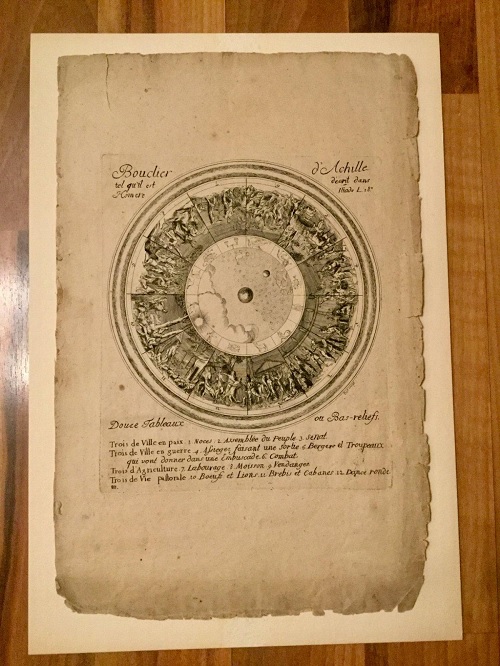 Bouclier d'Achille
tel qu'il est decrit dans
Homere Iliade L. 18e
Douze Tableaux ou Bas-reliefs.
Trois de Ville en paix 1 Noces. 2 Assemblée du Peuple 3. Senat.
Trois de Ville en guerre 4. Assiegez faisant une sortie 5 Bergers et Troupeaux
qui vont donner dans une Embuscade. 6. Combat.
Trois d'Agriculture 7. Labourage 8 Moisson 9 Vendanges
Trois de Vie pastorale 10 Boeufs et Lions. 11. Brebis et Cabanes. 12. Danse ronde